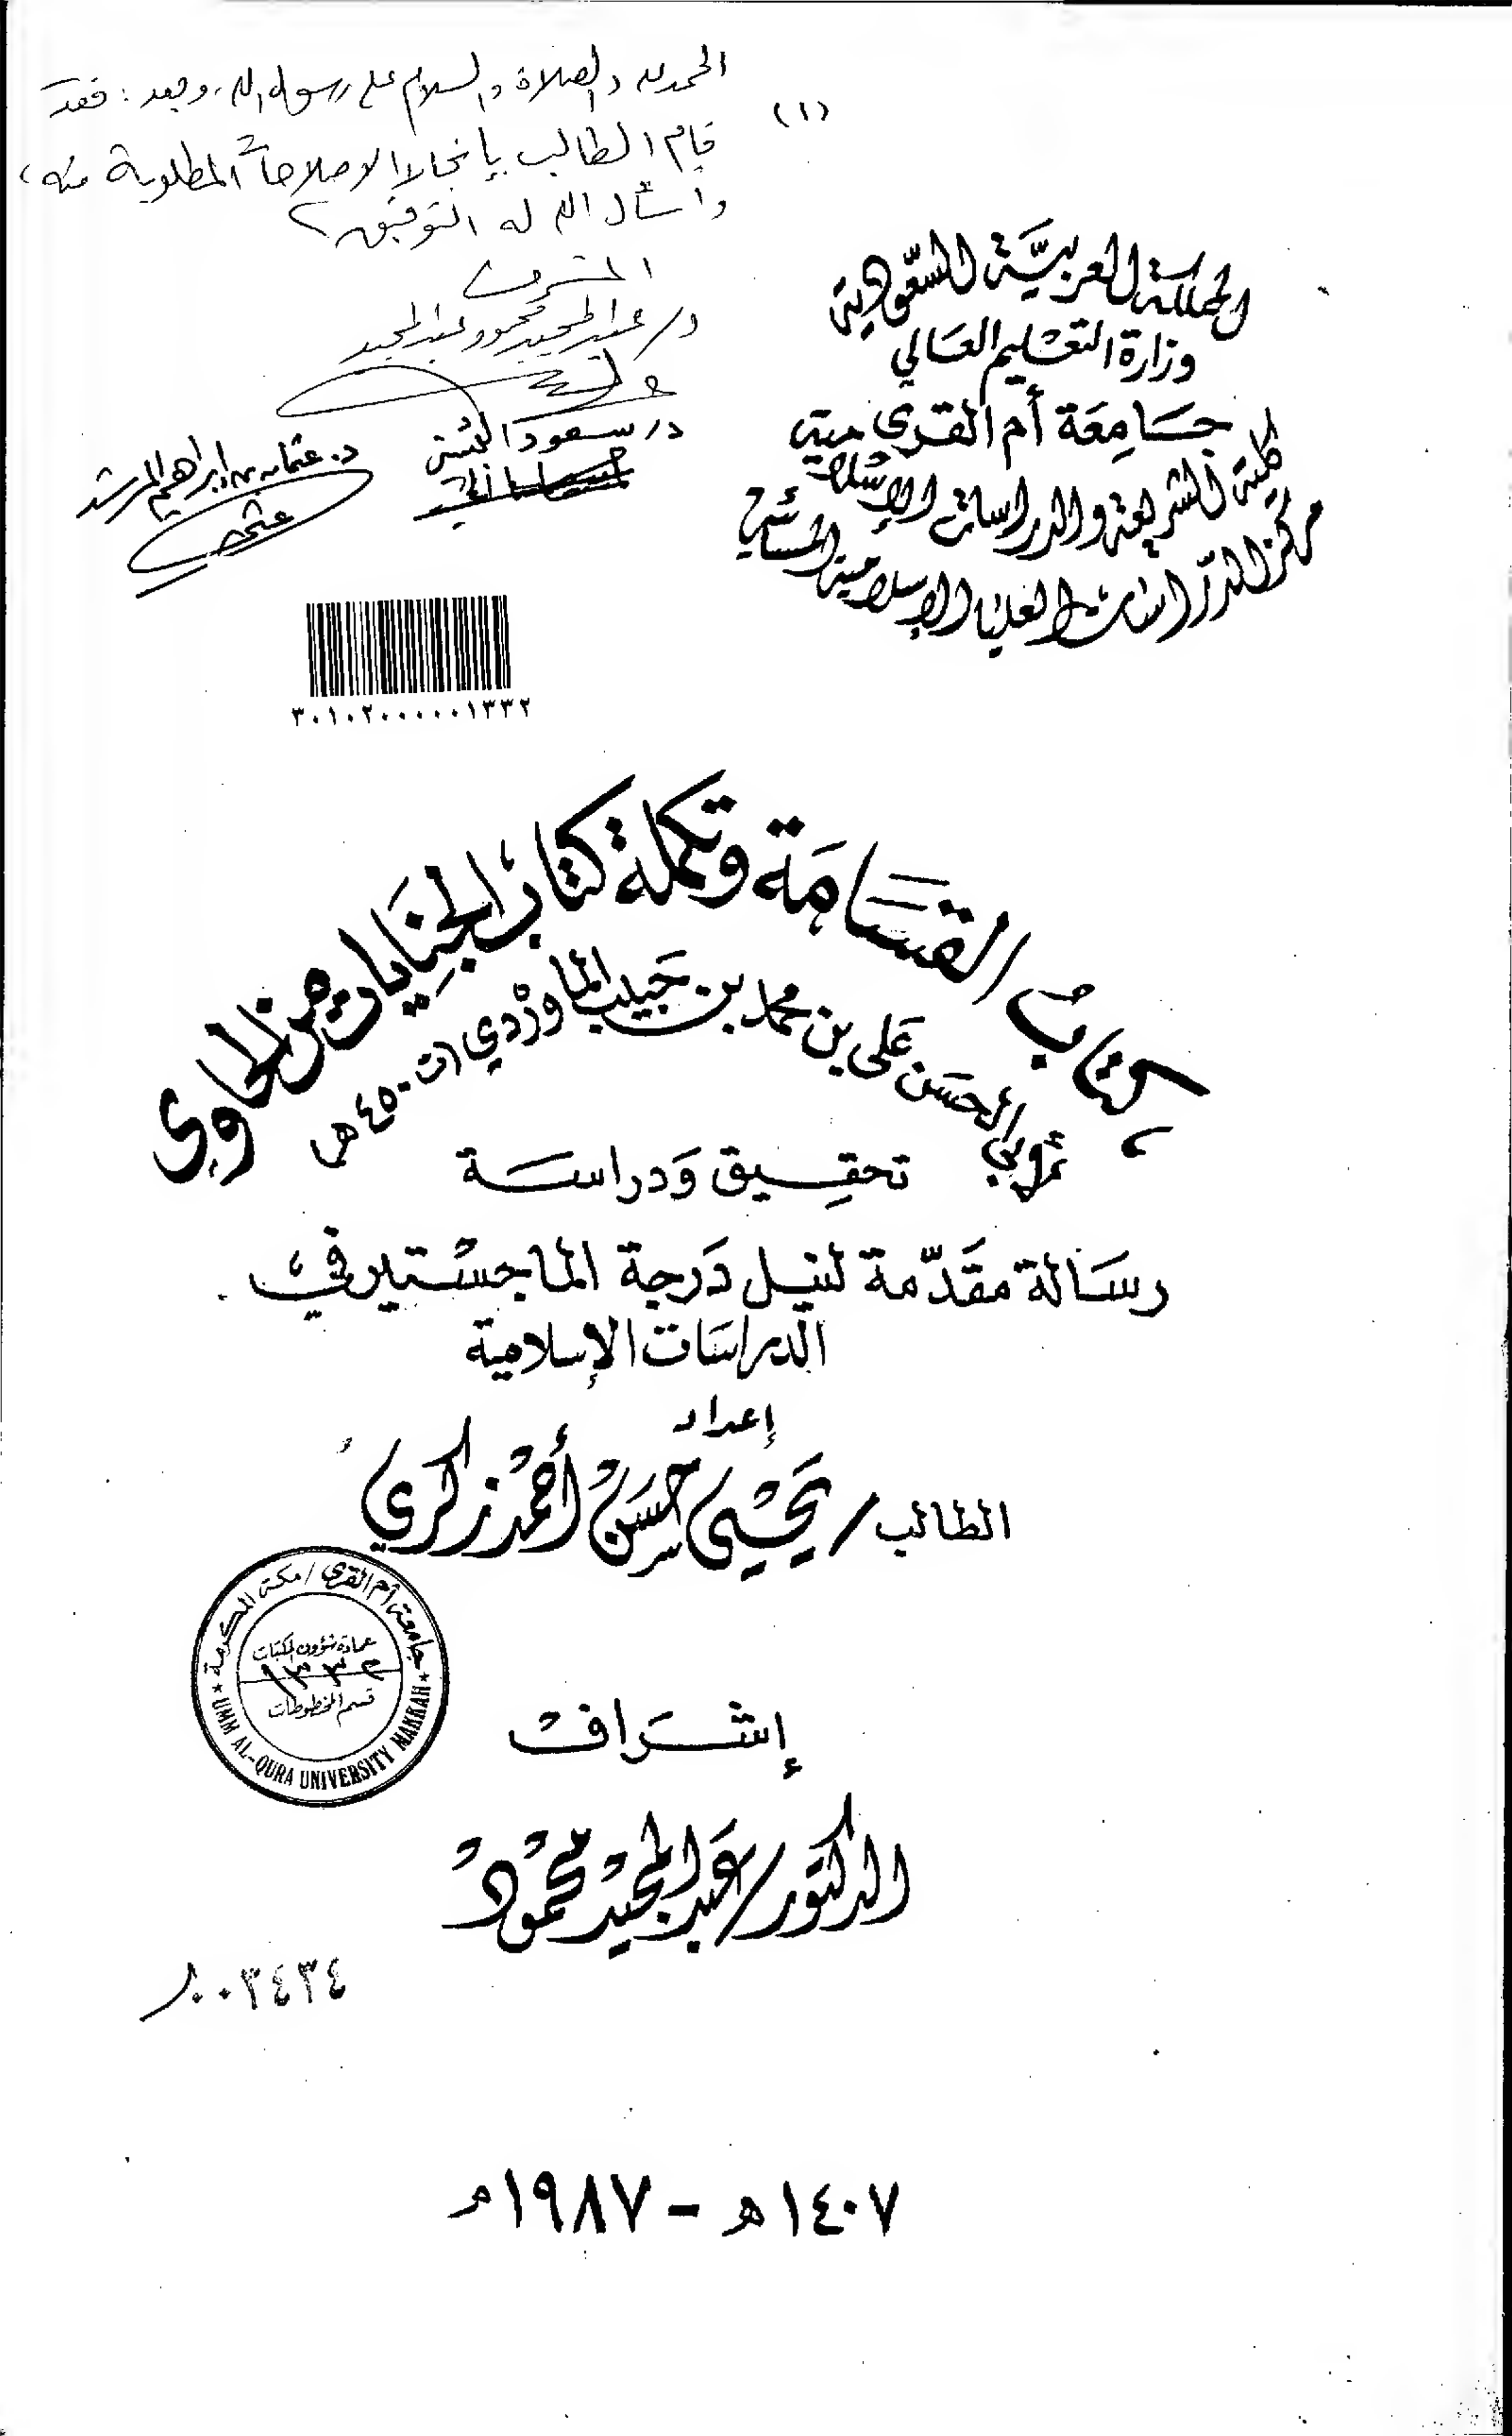 (١)
الحمد لله والصلاة والسلام على رسول الله، وبعد: فقد
قام الطالب بإنجاز الاصلاحات المطلوبة منه،
وأسأل الله له التوفيق
المشرف
د/ عبد المجيد محمود عبد المجيد
د. عثمان بن إبراهيم المرشد
المملكة العربيَّة السّعودية
وزارة التعْليم العَالي
جَامِعَة أم القرى
كلية الشريعة والدراسات الإسْلامية
مركز الدّراسات العليا الإسلامية المسائي
٣٠١٠٢٠٠٠٠٠١٣٣٢
كتابُ القسَامَة وتكملة كتاب الجِنَايات من الحاوي
لأبي الحسَن عَلى بن محمد بن حَبيب الماوَرْدي ت ٤٥٠ هـ
تحقِيق وَدراسَة
رسَالة مقَدّمة لنيل دَرجة الماجسْتير في
الدراسَات الإسلامية
إعداد
الطالب/ يَحْيى حسَنْ أحْمَد زكري
جامعة أم القرى / مكة المكرمة
عمادة شؤون المكتبات
١٣٣٢
قسم المخطوطات
UMM AL-QURA UNIVERSITY MAKKAH
إشرَاف
الدكتور/ عَبد المجيد محْمُود
٠٠٣٤٣٤
١٤٠٧ هـ - ١٩٨٧ م